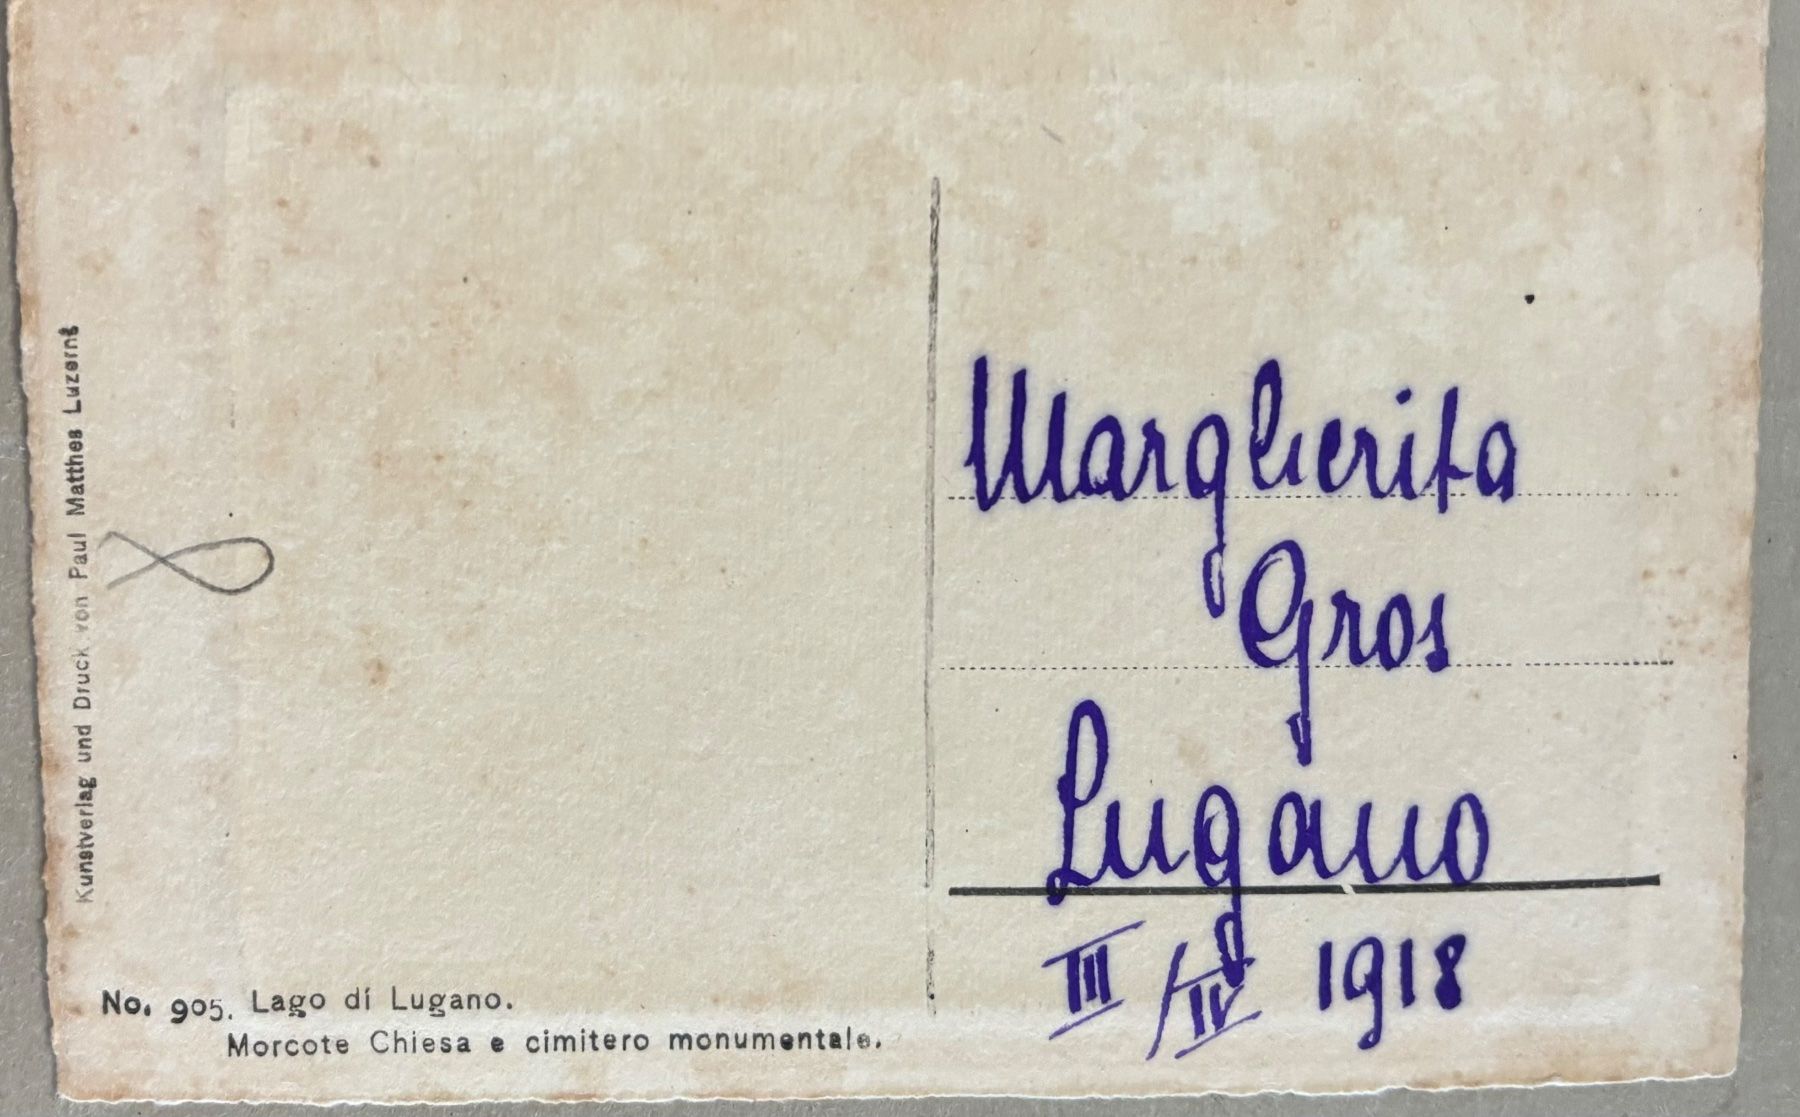 Kunstverlag und Druck von Paul Matthes Luzern
Margherita
Gros
Lugano
III/IV 1918
No. 905. Lago di Lugano.
Morcote Chiesa e cimitero monumentale.